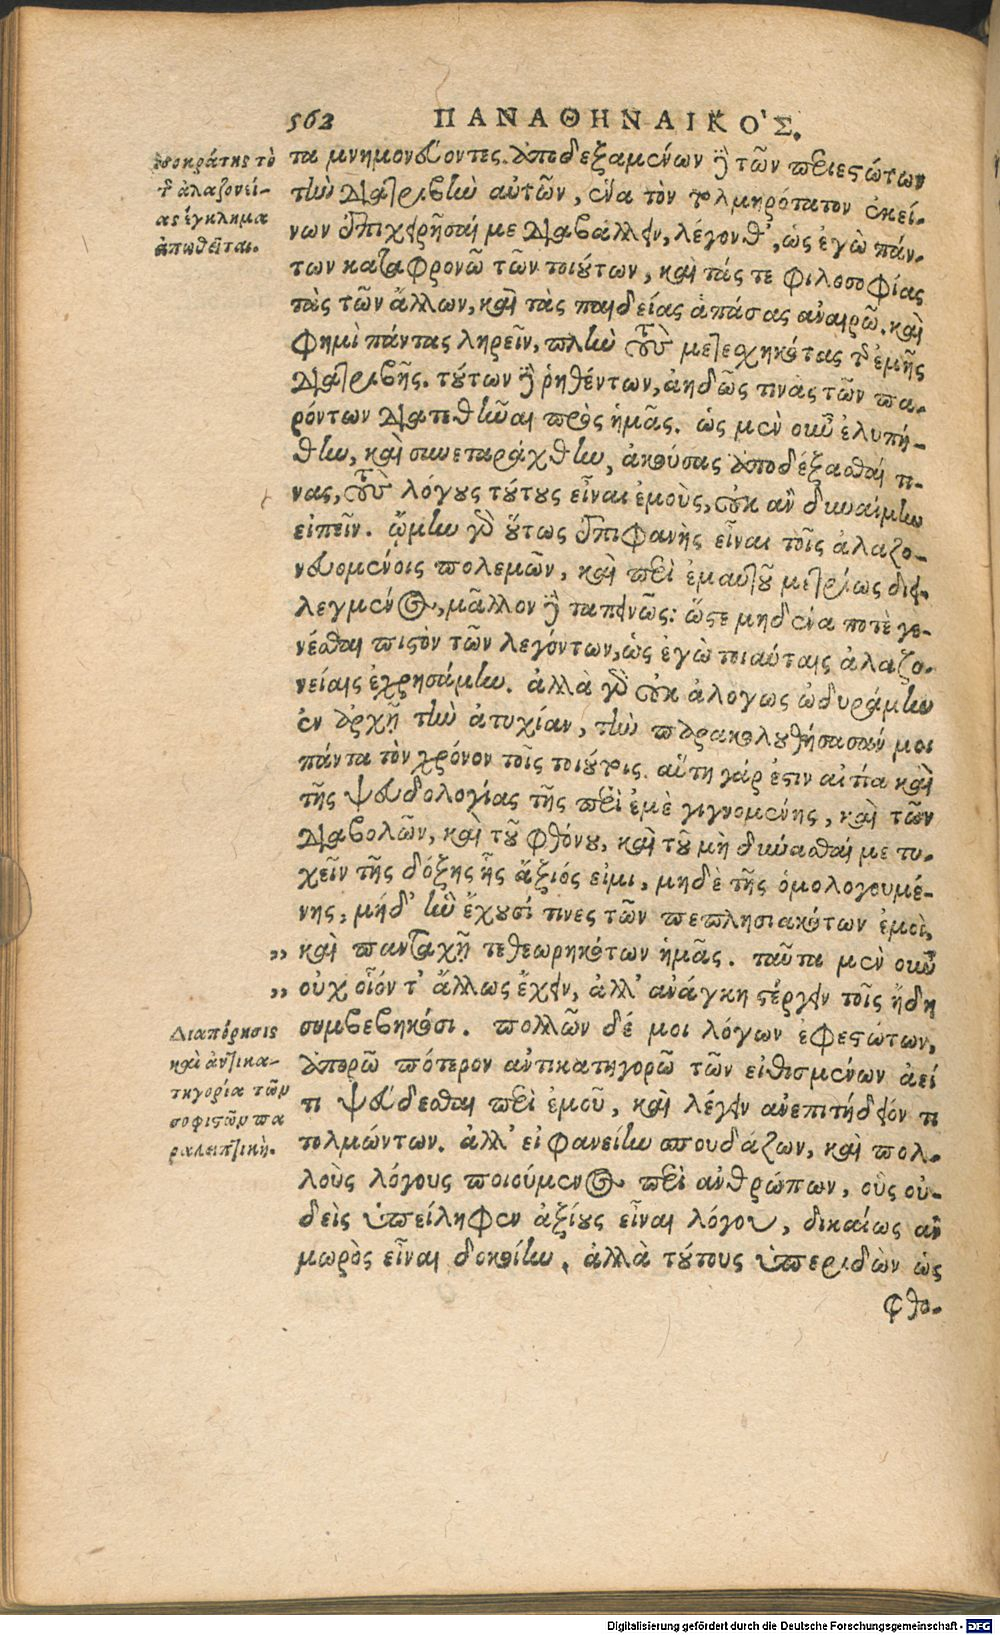 562 ΠΑΝΑΘΗΝΑΙΚΟ'Σ.
τα μνημονεύοντες. ἀποδεξαμένων δὲ τῶν περιεστώτων
τὴν διατριβὴν αὐτῶν, ἕνα τὸν τολμηρότατον ἐκεί-
νων ἐπιχειρῆσαί με διαβάλλειν, λέγονθ', ὡς ἐγὼ πάν-
των καταφρονῶ τῶν τοιούτων, καὶ τάς τε φιλοσοφίας
τὰς τῶν ἄλλων, καὶ τὰς παιδείας ἁπάσας ἀναιρῶ. καὶ
φημὶ πάντας ληρεῖν, πλὴν τοὺς μετεχηκότας τῆς ἐμῆς
διατριβῆς. τούτων δὲ ῥηθέντων, ἀηδῶς τινὰς τῶν πα-
ρόντων διατεθῆναι πρὸς ἡμᾶς. ὡς μὲν οὖν ἐλυπή-
θην, καὶ συνεταράχθην, ἀκούσας ἀποδέξασθαί τι-
νας, τοὺς λόγους τούτους εἶναι ἐμοὺς, οὐκ ἂν δυναίμην
εἰπεῖν. ᾤμην γὰρ οὕτως ἐπιφανὴς εἶναι τοῖς ἀλαζο-
νευομένοις πολεμῶν, καὶ περὶ ἐμαυτοῦ μετρίως διει-
λεγμένος, μᾶλλον δὲ ταπεινῶς: ὥστε μηδένα ποτὲ γε-
νέσθαι πιστὸν τῶν λεγόντων, ὡς ἐγὼ τοιαύταις ἀλαζο-
νείαις ἐχρησάμην. ἀλλὰ γὰρ οὐκ ἀλόγως ὠδυράμην
ἐν ἀρχῇ τὴν ἀτυχίαν, τὴν παρακολουθήσασάν μοι
πάντα τὸν χρόνον τοῖς τοιούτοις. αὕτη γάρ ἐστιν αἰτία καὶ
τῆς ψευδολογίας τῆς περὶ ἐμὲ γιγνομένης, καὶ τῶν
διαβολῶν, καὶ τοῦ φθόνου, καὶ τοῦ μὴ δύνασθαί με τυ-
χεῖν τῆς δόξης ἧς ἄξιός εἰμι, μηδὲ τῆς ὁμολογουμέ-
νης, μήδ' ἣν ἔχουσί τινες τῶν πεπλησιακότων ἐμοὶ,
„ καὶ πανταχῇ τεθεωρηκότων ἡμᾶς. ταῦτα μὲν οὖν
„ οὐχ οἷόν τ' ἄλλως ἔχειν, ἀλλ' ἀνάγκη στέργειν τοῖς ἤδη
συμβεβηκόσι. πολλῶν δέ μοι λόγων ἐφεστώτων,
ἀπορῶ πότερον ἀντικατηγορῶ τῶν εἰθισμένων ἀεί
τι ψεύδεσθαι περὶ ἐμοῦ, καὶ λέγειν ἀνεπιτήδειόν τι
τολμώντων. ἀλλ' εἰ φανείην σπουδάζων, καὶ πολ-
λοὺς λόγους ποιούμενος περὶ ἀνθρώπων, οὓς οὐ-
δεὶς ὑπείληφεν ἀξίους εἶναι λόγου, δικαίως ἂν
μωρὸς εἶναι δοκοίην. ἀλλὰ τούτους ὑπεριδὼν ὡς
φθο-
Ἰσοκράτης τὸ
τῆς ἀλαζονεί-
ας ἔγκλημα
ἀπωθεῖται.
Διαπόρησις
καὶ ἀντικα-
τηγορία τῶν
σοφιστῶν πα
ραλειπτικὴ.
Digitalisierung gefördert durch die Deutsche Forschungsgemeinschaft - DFG